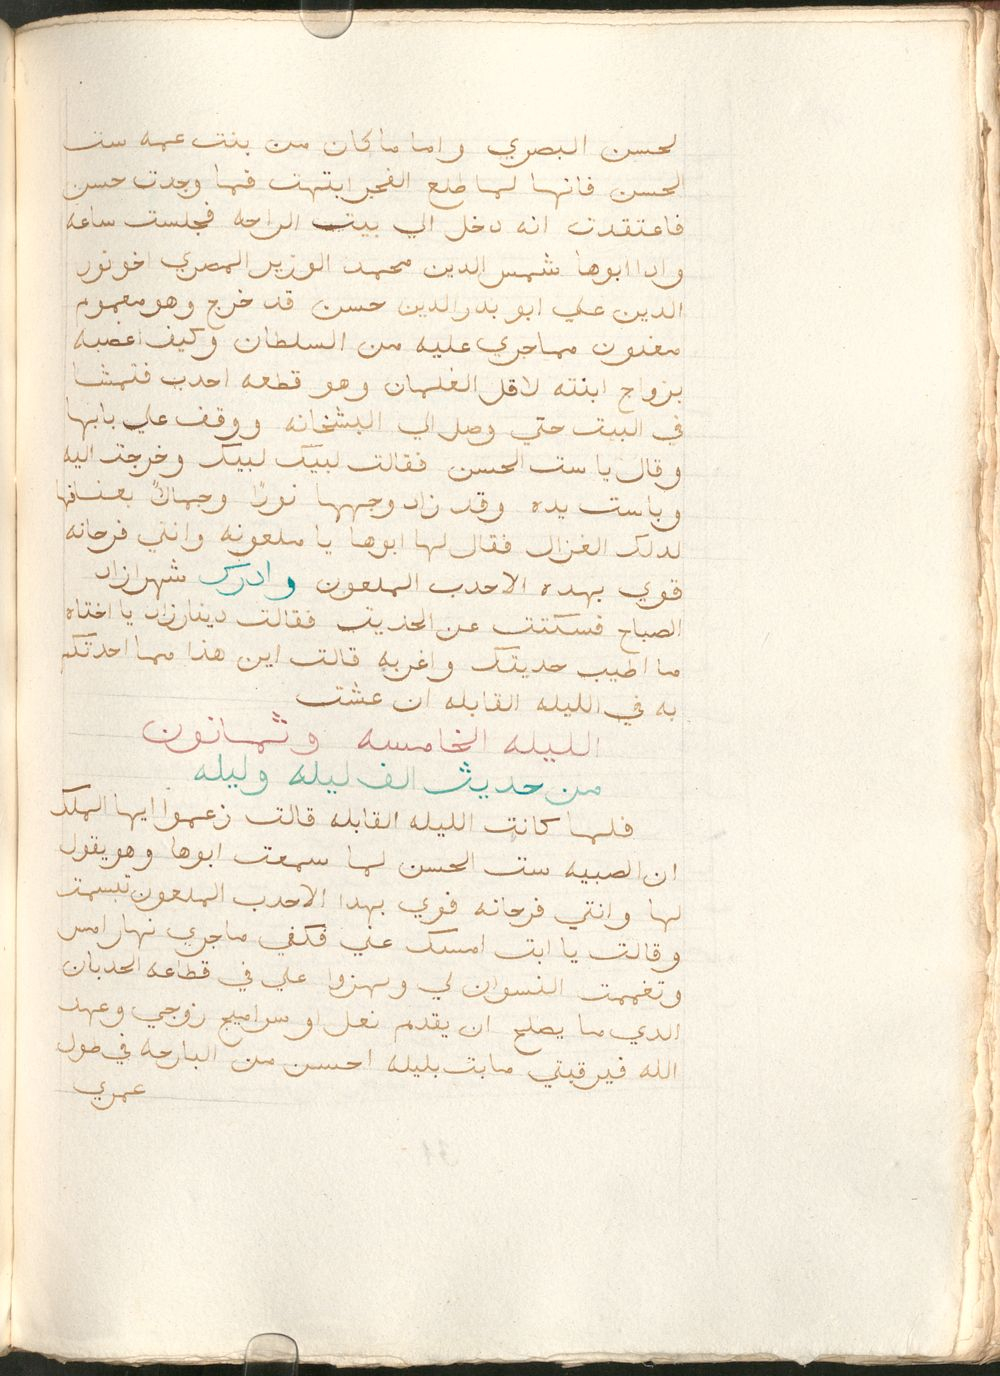 لحسن البصري واما ما كان من بنت عمه ست
الحسن فانها لما طلع الفجر ابتهت فما وجدت حسن
فاعتقدت انه دخل الي بيت الراحه فجلست ساعه
وادا ابوها شمس الدين محمد الوزير المصري اخو نور
الدين علي ابو بدر الدين حسن قد خرج وهو معموم
مغنون مما جري عليه من السلطان وكيف اغصبه
بزواج ابنته لاقل الغلمان وهو قطعه احدب فتمشا
في البيت حتي وصل الي البشخانه ووقف علي بابها
وقال يا ست الحسن فقالت لبيك لبيك وخرجت اليه
وباست يده وقد زاد وجهها نورًا وجمالًا بعناقها
لدلك الغزال فقال لها ابوها يا ملعونه وانتي فرحانه
قوي بهده الاحدب الملعون وادرك شهرازاد
الصباح فسكتت عن الحديت فقالت دينارزاد يا اختاه
ما اطيب حديتك واغربه قالت اين هذا مما احدتكم
به في الليله القابله ان عشت
الليله الخامسه وثمانون
من حديث الف ليله وليله
فلما كانت الليله القابله قالت زعموا ايها الملك
ان الصبيه ست الحسن لما سمعت ابوها وهو يقول
لها وانتي فرحانه قوي بهدا الاحدب الملعون تبسمت
وقالت يا ابت امسك عني فكفي ماجري نهار امس
وتغممت النسوان لي وهزوا علي في قطاعه الحدبان
الدي ما يصلح ان يقدم نعل او سراميج زوجي وعهد
الله فيرقبتي مابت بليله احسن من البارحه في طول
عمري